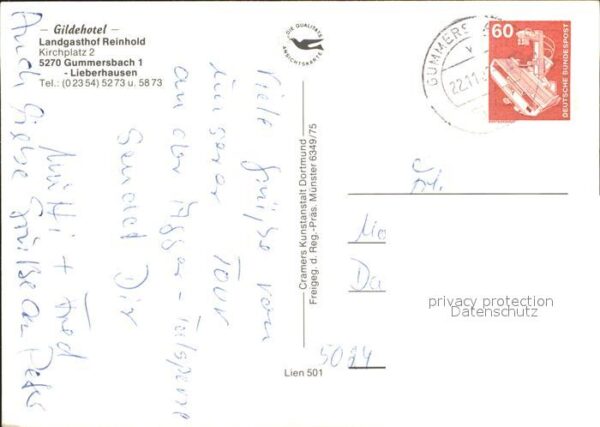 - Gildehotel -
Landgasthof Reinhold
Kirchplatz 2
5270 Gummersbach 1
- Lieberhausen
Tel.: (0 23 54) 52 73 u. 58 73
DIE QUALITÄTS
ANSICHTSKARTE
GUMMERS
22.11.
60
DEUTSCHE BUNDESPOST
Viele Grüße von
unserer Tour
an der Agger-Talsperre
sendet Dir
Mutti + Fred
Auch Grüße an Peter
Cramers Kunstanstalt Dortmund
Freigeg. d. Reg.-Präs. Münster 6349/75
Lien 501
Frl.
Mo
Da
privacy protection
Datenschutz